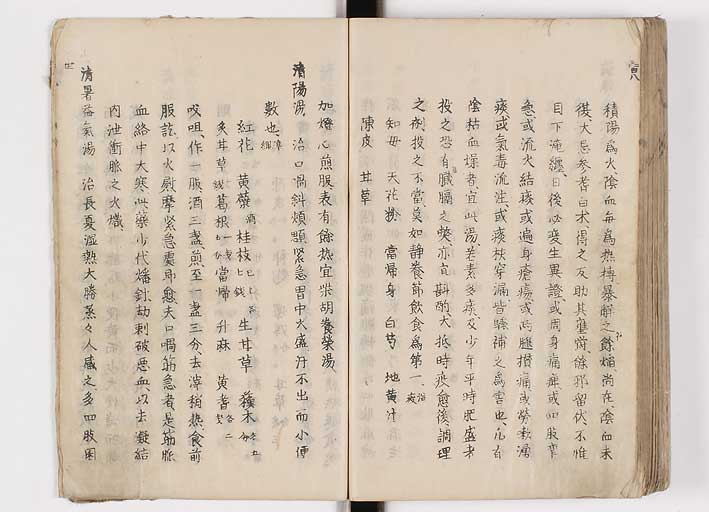 積陽為火陰血每為熱搏暴解之餘焰尚在陰血未
復大忌參耆白朮得之反助其壅鬱餘邪留伏不惟
目下淹纏日後必変生異證或周身痛痺或四肢攣
急或流火結痰或遍身瘡瘍或両腿攅痛或勞嗽湧
痰或氣毒流注或痰核穿漏皆驟補之為害也凡有
陰枯血燥者宜此湯若素多痰及少年平時肥盛者
投之恐有膩膈之獘亦宜斟酌大抵時疫愈後調理
之剤投之不當莫如静養節飲食為第一
知母 天花粉 當歸身 白芍 地黄汁
陳皮 甘草
加燈心煎服表有餘熱宜柴胡養榮湯
清陽湯 治口喎斜頬顋緊急胃中火盛汗不出而小便
數也
紅花 黄蘗酒 桂枝 生甘草 蘇木
炙甘草 葛根 當歸 升麻 黄耆
㕮咀作一服酒三盞煎至一盞三分去滓稍熱食前
服訖以火尉摩緊急處即愈夫口喎筋急者是筋脈
血絡中大寒此藥少代燔針劫刺破惡血以去凝結
内泄衝脈之火熾
清暑益氣湯 治長夏濕熱大勝蒸々人感之多四肢困